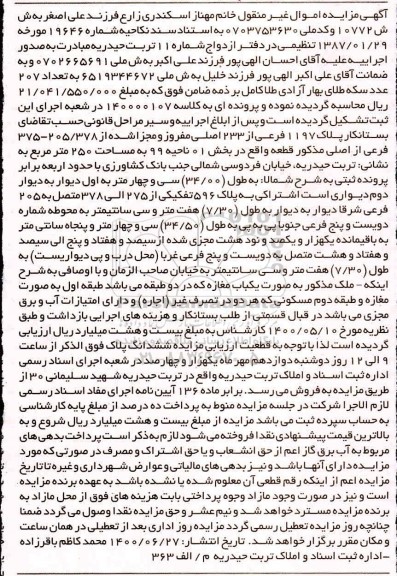 آگهی مزایده اموال غیر منقول خانم مهناز اسکندری زارع فرزند علی اصغر به ش
ش ۱۰۷۷۲ و کدملی ۰۷۰۳۷۵۳۶۳۰ به استناد سند نکاحیه شماره ۱۹۶۴۶ مورخه
۱۳۸۷/۰۱/۲۹ تنظیمی در دفتر ازدواج شماره ۱۱ تربت حیدریه مبادرت به صدور
اجراییه علیه آقای احسان الهی پور فرزند علی اکبر به ش ملی ۰۷۰۲۶۶۵۶۹۱ و به
ضمانت آقای علی اکبر الهی پور فرزند خلیل به ش ملی ۶۵۱۹۳۴۴۶۷۲ به تعداد ۲۰۷
عدد سکه طلای بهار آزادی طلا کامل بر ذمه ضامن فوق که به مبلغ ۲۱/۰۴۱/۵۵۰/۰۰۰
ریال محاسبه گردیده نموده و پرونده ای به کلاسه ۱۴۰۰۰۰۱۰۷ در شعبه اجرای این
ثبت تشکیل گردیده است و پس از ابلاغ اجراییه و سیر مراحل قانونی حسب تقاضای
بستانکار پلاک ۱۱۹۷ فرعی از ۲۳۳ اصلی مفروز و مجزا شده از ۲۰۵/۳۷۸-۳۷۵
فرعی از اصلی مذکور قطعه واقع در بخش ۰۱ ناحیه ۹۹ به مساحت ۲۵۰ متر مربع به
نشانی: تربت حیدریه، خیابان فردوسی شمالی جنب بانک کشاورزی با حدود اربعه برابر
پرونده ثبتی به شرح شمالا: به طول (۳۴/۰۰) سی و چهار متر به اول دیوار به دیوار
دوم دیواری است اشتراکی به پلاک ۵۹۶ تفکیکی از ۲۷۵ الی ۳۷۸ متصل به ۲۰۵
فرعی شرقا دیوار به دیوار به طول (۷/۳۰) هفت متر و سی سانتیمتر به محوطه شماره
دویست و پنج فرعی جنوبا پی به پی به طول (۳۴/۵۰) سی و چهار متر و پنجاه سانتی متر
به باقیمانده یکهزار و یکصد و نود هشت مجزی شده از سیصد و هفتاد و پنج الی سیصد
و هفتاد و هشت متصل به دویست و پنج فرعی غربا (محل درب و پی دیواریست) به
طول (۷/۳۰) هفت متر و سی سانتیمتر به خیابان صاحب الزمان و با اوصافی به شرح
اینکه - ملک مذکور به صورت یکباب مغازه که در دو طبقه می باشد طبقه اول به صورت
مغازه و طبقه دوم مسکونی که هر دو در تصرف غیر (اجاره) و دارای امتیازات آب و برق
مجزی می باشد در قبال قسمتی از طلب بستانکار و هزینه های اجرایی بازداشت و طبق
نظریه مورخ ۱۴۰۰/۰۵/۱۰ کارشناس به مبلغ بیست و هشت میلیارد ریال ارزیابی
گردیده است لذا با توجه به قطعیت ارزیابی مزایده ششدانگ پلاک فوق الذکر از ساعت
۹ الی ۱۲ روز دوشنبه دوازدهم مهر ماه یکهزار و چهارصد در شعبه اجرای اسناد رسمی
اداره ثبت اسناد و املاک تربت حیدریه واقع در تربت حیدریه شهید سلیمانی ۳۰ از
طریق مزایده به فروش می رسد. برابر ماده ۱۳۶ آیین نامه اجرای مفاد اسناد رسمی
لازم الاجرا شرکت در جلسه مزایده منوط به پرداخت ده درصد از مبلغ پایه کارشناسی
به حساب سپرده ثبت می باشد مزایده از مبلغ بیست و هشت میلیارد ریال شروع و به
بالاترین قیمت پیشنهادی نقدا فروخته می شود لازم به ذکر است پرداخت بدهی های
مربوط به آب برق گاز اعم از حق انشعاب و یا حق اشتراک و مصرف در صورتی که مورد
مزایده دارای آنها باشد و نیز بدهی های مالیاتی و عوارض شهرداری و غیره تا تاریخ
مزایده اعم از اینکه رقم قطعی آن معلوم شده یا نشده باشد به عهده برنده مزایده
است و نیز در صورت وجود مازاد وجوه پرداختی بابت هزینه های فوق از محل مازاد به
برنده مزایده مسترد خواهد شد و نیم عشر و حق مزایده نقدا وصول می گردد ضمنا
چنانچه روز مزایده تعطیل رسمی گردد مزایده روز اداری بعد از تعطیلی در همان ساعت
و مکان مقرر برگزار خواهد شد. تاریخ انتشار: ۱۴۰۰/۰۶/۲۷ محمد کاظم باقرزاده
-اداره ثبت اسناد و املاک تربت حیدریه م / الف ۳۶۳